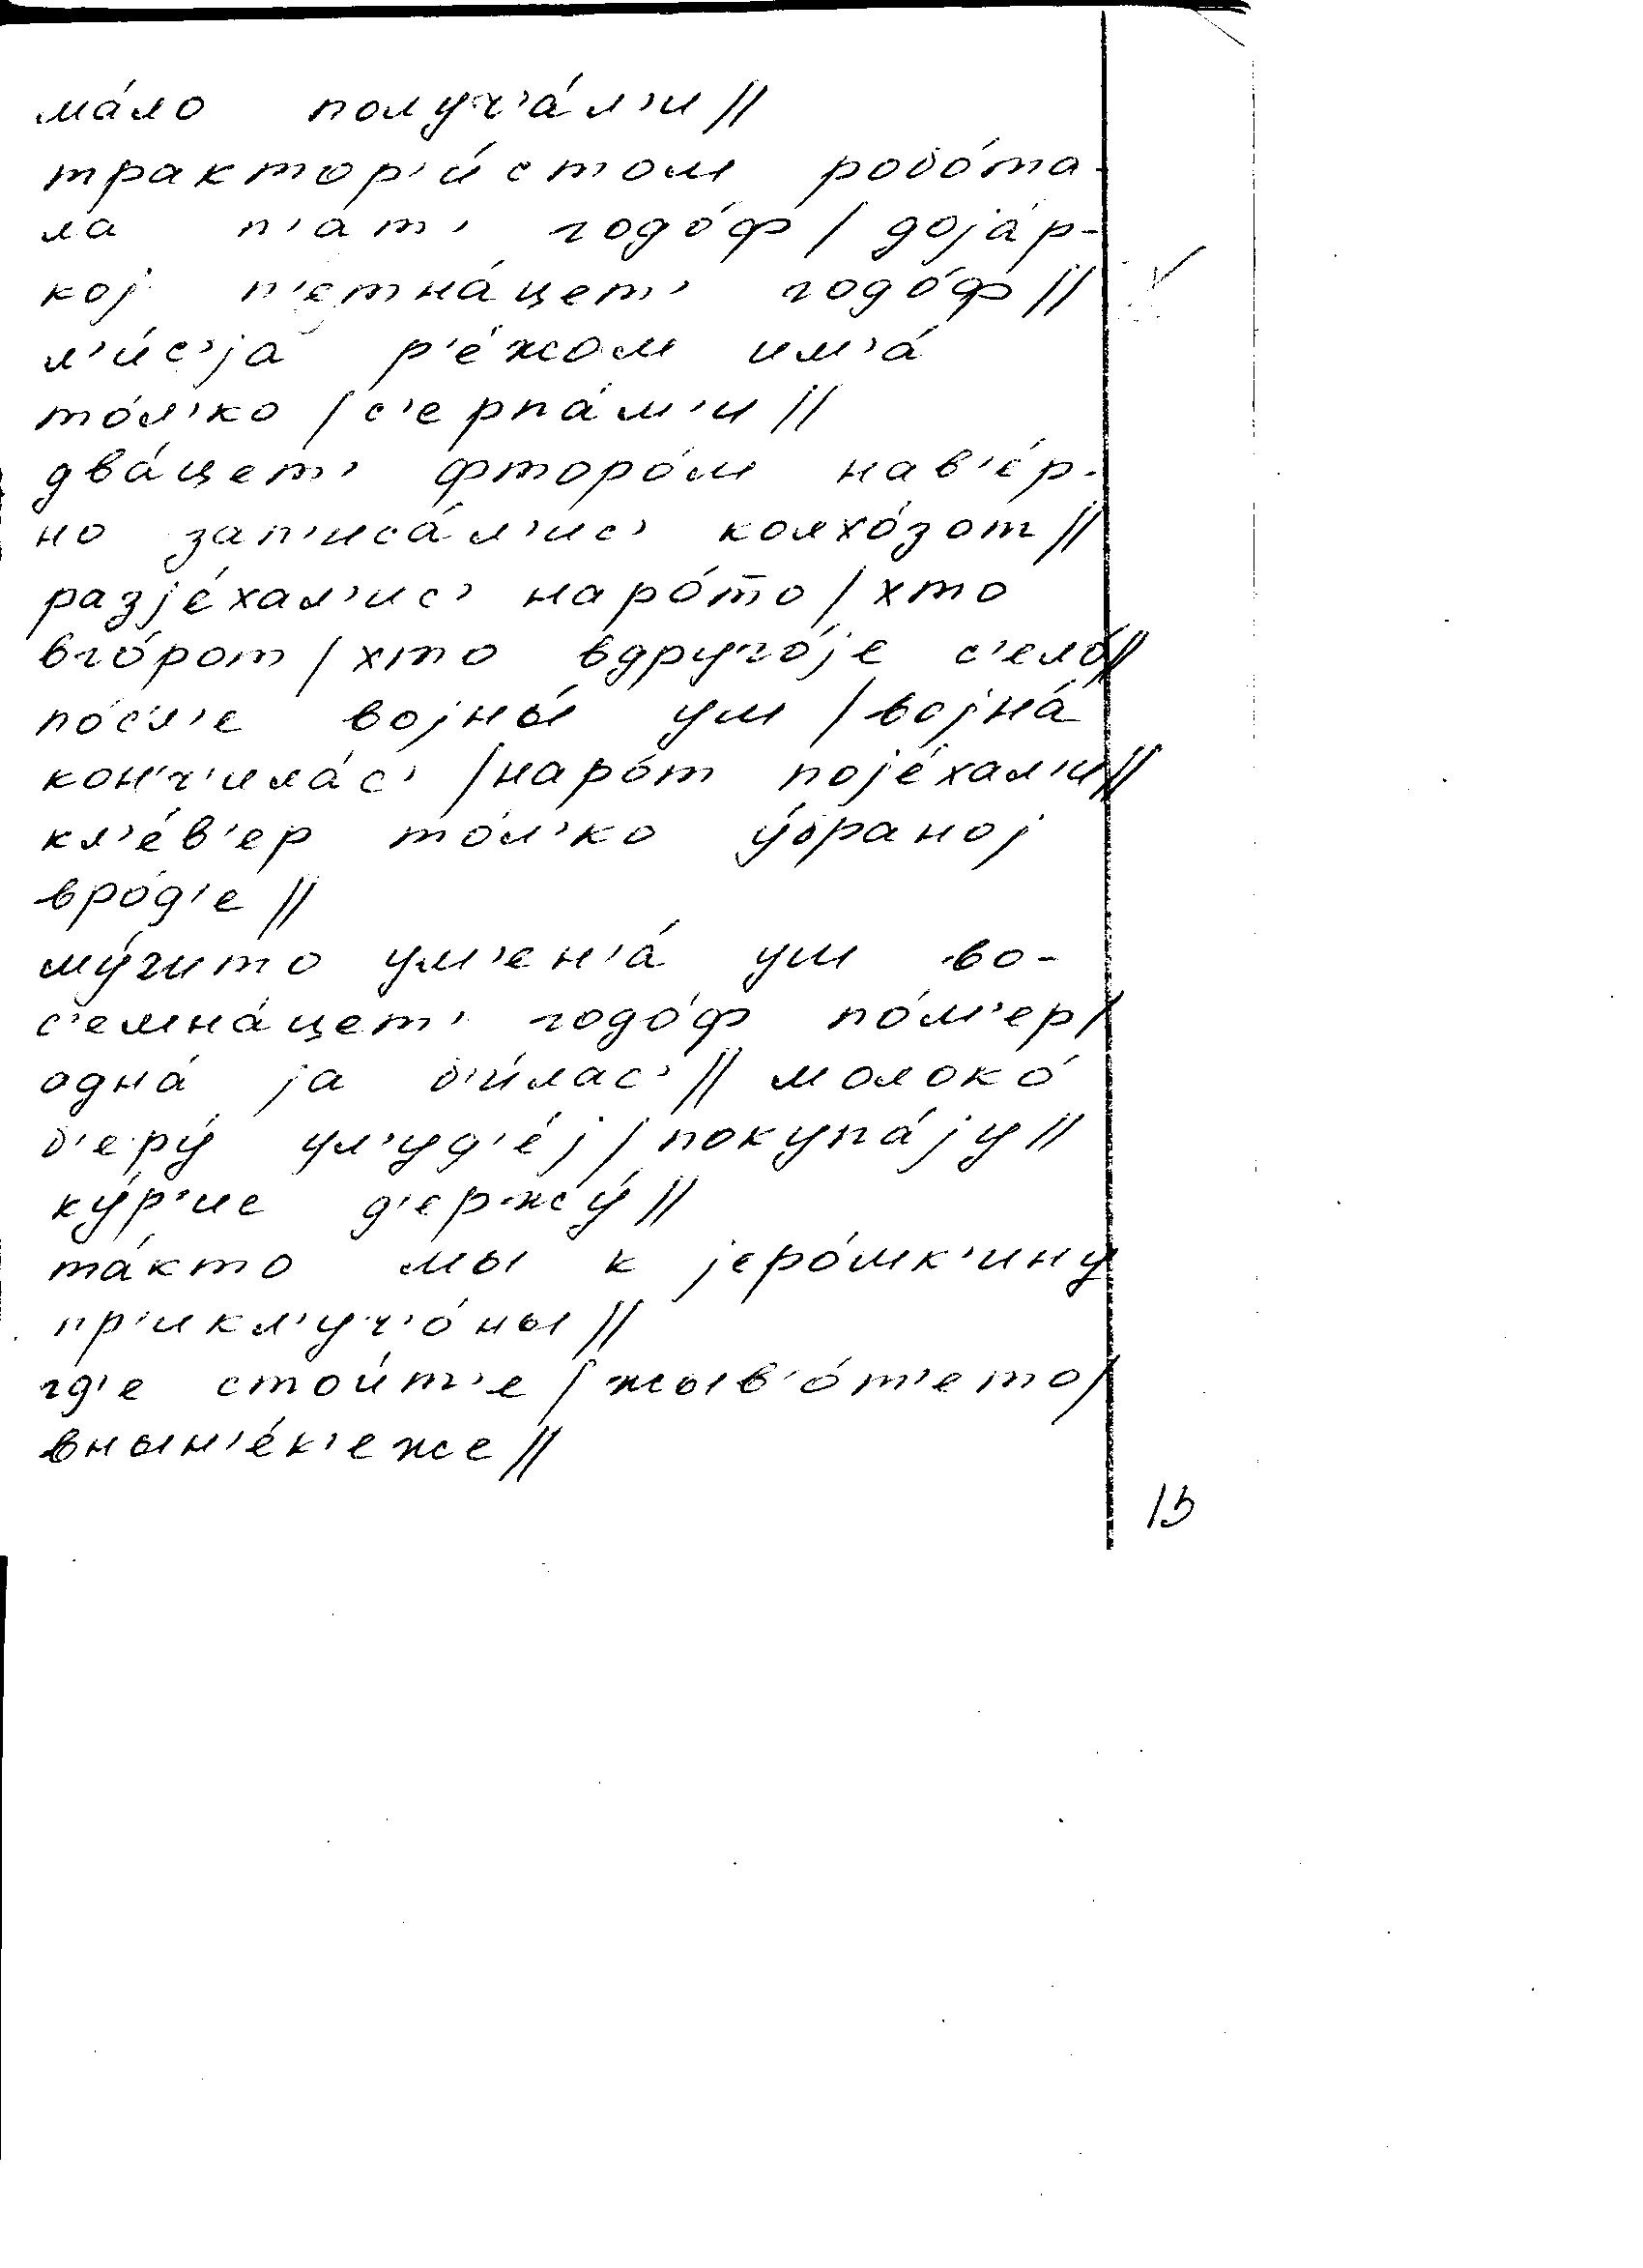 ма́ло получ'а́л'и //
трактор'и́стом робо́та-
ла п'ат' годо́ф / доја́р-
кој п'етна́цет' годо́ф //
л'и́с'ја р'е́жом им'а́
то́л'ко / с'ерпа́м'и //
два́цет' фторо́м нав'е́р-
но зап'иса́л'ис' колхо́зот //
разје́хал'ис' наро́то / хто
вго́рот / хто вдруго́је с'ело́ //
по́с'л'е војны́ уш / војна́
кон'ч'ила́с' / наро́т поје́хал'и //
кл'е́в'ер то́л'ко у́браној
вро́д'е //
му́жито ум'ен'а́ уш во-
с'емна́цет' годо́ф по́м'ер /
одна́ ја б'и́лас' // молоко́
б'еру́ ул'уд'е́ј / покупа́ју //
ку́р'ис д'ержу́ //
та́кто мы к јеро́мк'ину
пр'икл'уч'о́ны //
гд'е стои́т'е / жыв'о́т'ето /
внын'е́к'еже //
15